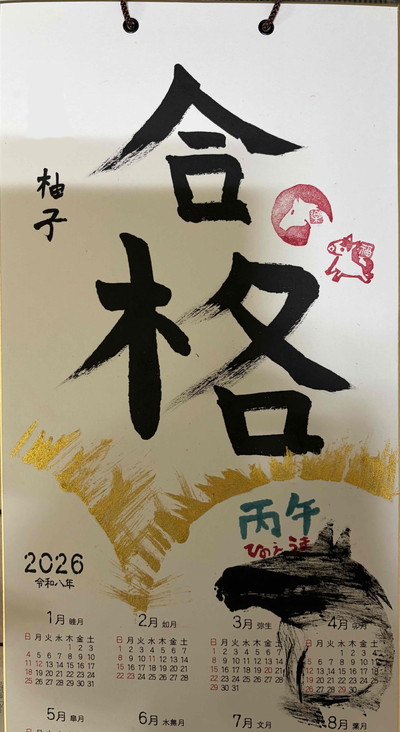 合格
柚子
福
丙午
ひのえ うま
2026
令和八年
1月 睦月
日 月 火 水 木 金 土
1 2 3
4 5 6 7 8 9 10
11 12 13 14 15 16 17
18 19 20 21 22 23 24
25 26 27 28 29 30 31
2月 如月
日 月 火 水 木 金 土
1 2 3 4 5 6 7
8 9 10 11 12 13 14
15 16 17 18 19 20 21
22 23 24 25 26 27 28
3月 弥生
日 月 火 水 木 金 土
1 2 3 4 5 6 7
8 9 10 11 12 13 14
15 16 17 18 19 20 21
22 23 24 25 26 27 28
29 30 31
4月 卯月
日 月 火 水 木 金 土
5月 皐月
6月 水無月
7月 文月
8月 葉月